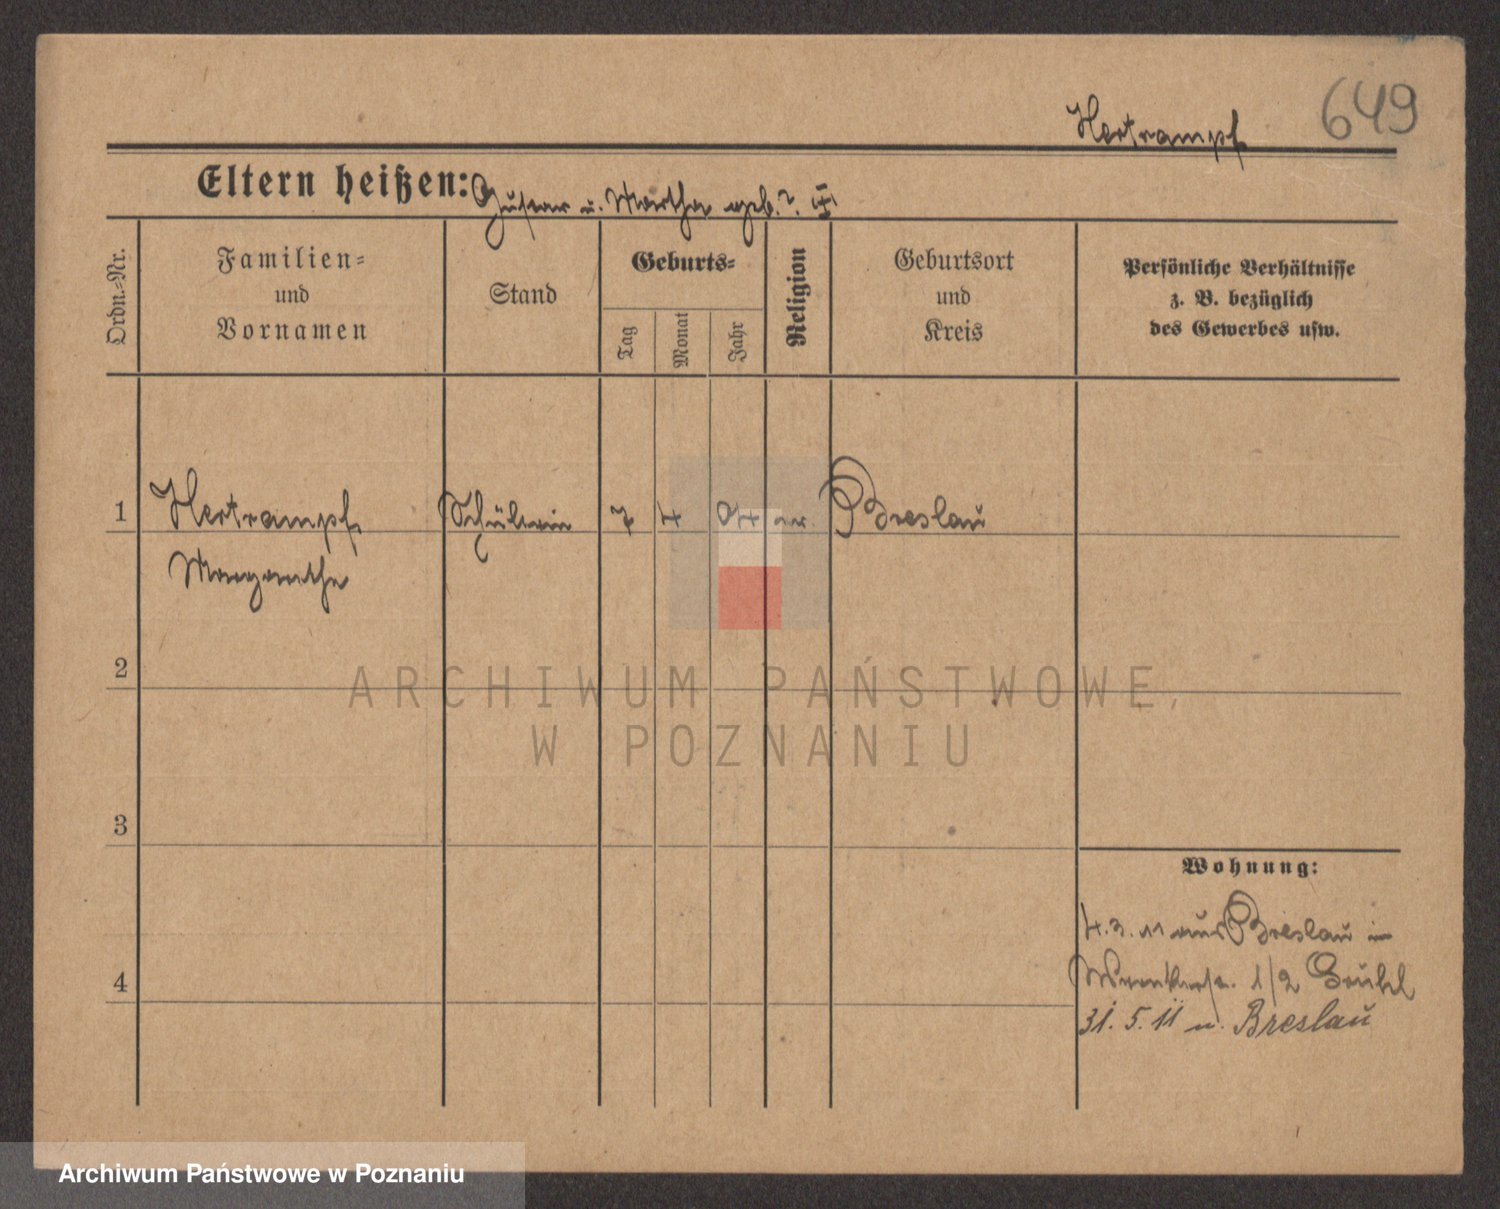 649
Hertrampf
Eltern heißen: Gustav u. Martha geb. ?.
Ordn.-Nr.
Familien-
und
Vornamen
Stand
Geburts-
Tag
Monat
Jahr
Religion
Geburtsort
und
Kreis
Persönliche Verhältnisse
z. B. bezüglich
des Gewerbes usw.
1 Hertrampf Schülerin 7 4 94 ev. Breslau
Margarethe
2
ARCHIWUM PAŃSTWOWE
W POZNANIU
3
Wohnung:
4. 3. 11 aus Breslau in
1/2
4
31. 5. 11 n. Breslau
Archiwum Państwowe w Poznaniu